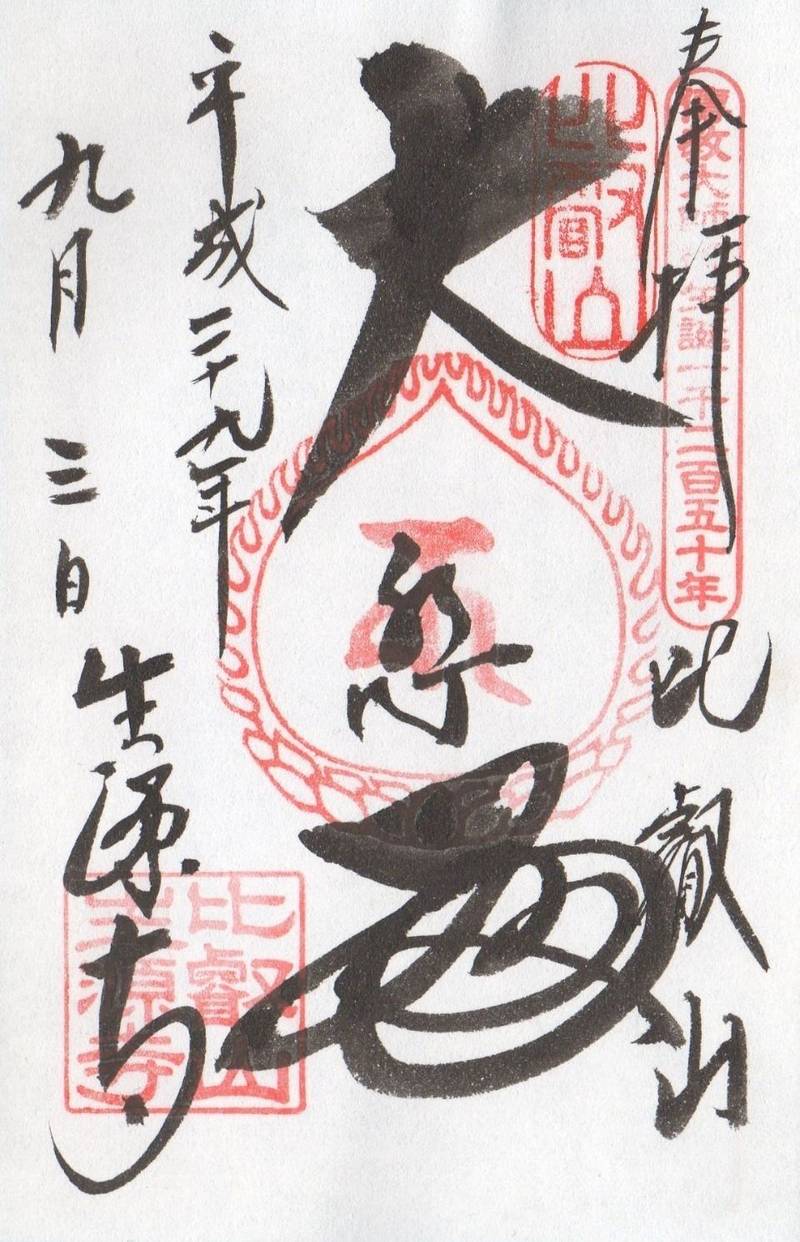 奉拝
傳教大師御生誕一千二百五十年
比叡山
比叡山
大
平成二十九年
九月三日
生源寺
比叡山
生源寺